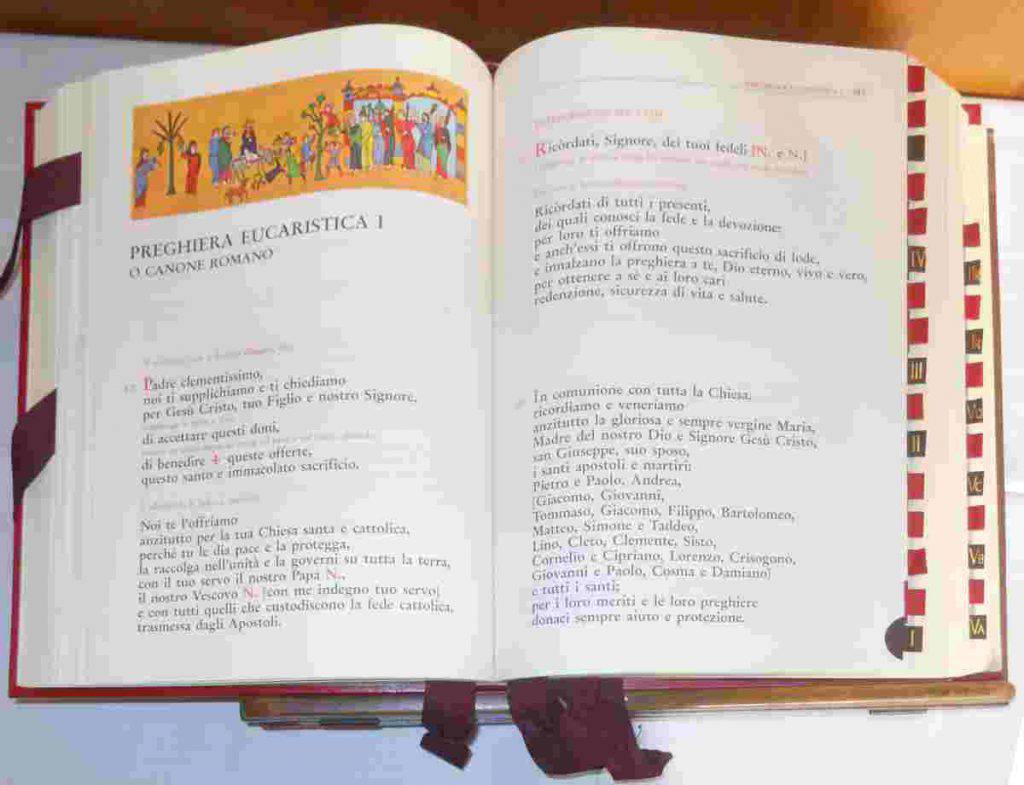 PREGHIERA EUCARISTICA I
O CANONE ROMANO
Padre clementissimo,
noi ti supplichiamo e ti chiediamo
per Gesù Cristo, tuo Figlio e nostro Signore,
di accettare questi doni,
di benedire ✠ queste offerte,
questo santo e immacolato sacrificio.
Noi te l'offriamo
anzitutto per la tua Chiesa santa e cattolica,
perché tu le dia pace e la protegga,
la raccolga nell'unità e la governi su tutta la terra,
con il tuo servo il nostro Papa N.,
il nostro Vescovo N. [con me indegno tuo servo]
e con tutti quelli che custodiscono la fede cattolica,
trasmessa dagli Apostoli.
Ricòrdati, Signore, dei tuoi fedeli [N. e N.]
Ricòrdati di tutti i presenti,
dei quali conosci la fede e la devozione:
per loro ti offriamo
e anch'essi ti offrono questo sacrificio di lode,
e innalzano la preghiera a te, Dio eterno, vivo e vero,
per ottenere a sé e ai loro cari
redenzione, sicurezza di vita e salute.
In comunione con tutta la Chiesa,
ricordiamo e veneriamo
anzitutto la gloriosa e sempre vergine Maria,
Madre del nostro Dio e Signore Gesù Cristo,
san Giuseppe, suo sposo,
i santi apostoli e martiri:
Pietro e Paolo, Andrea,
[Giacomo, Giovanni,
Tommaso, Giacomo, Filippo, Bartolomeo,
Matteo, Simone e Taddeo,
Lino, Cleto, Clemente, Sisto,
Cornelio e Cipriano, Lorenzo, Crisogono,
Giovanni e Paolo, Cosma e Damiano]
e tutti i santi;
per i loro meriti e le loro preghiere
donaci sempre aiuto e protezione.
IV
III
II
I
VC
VB
VA